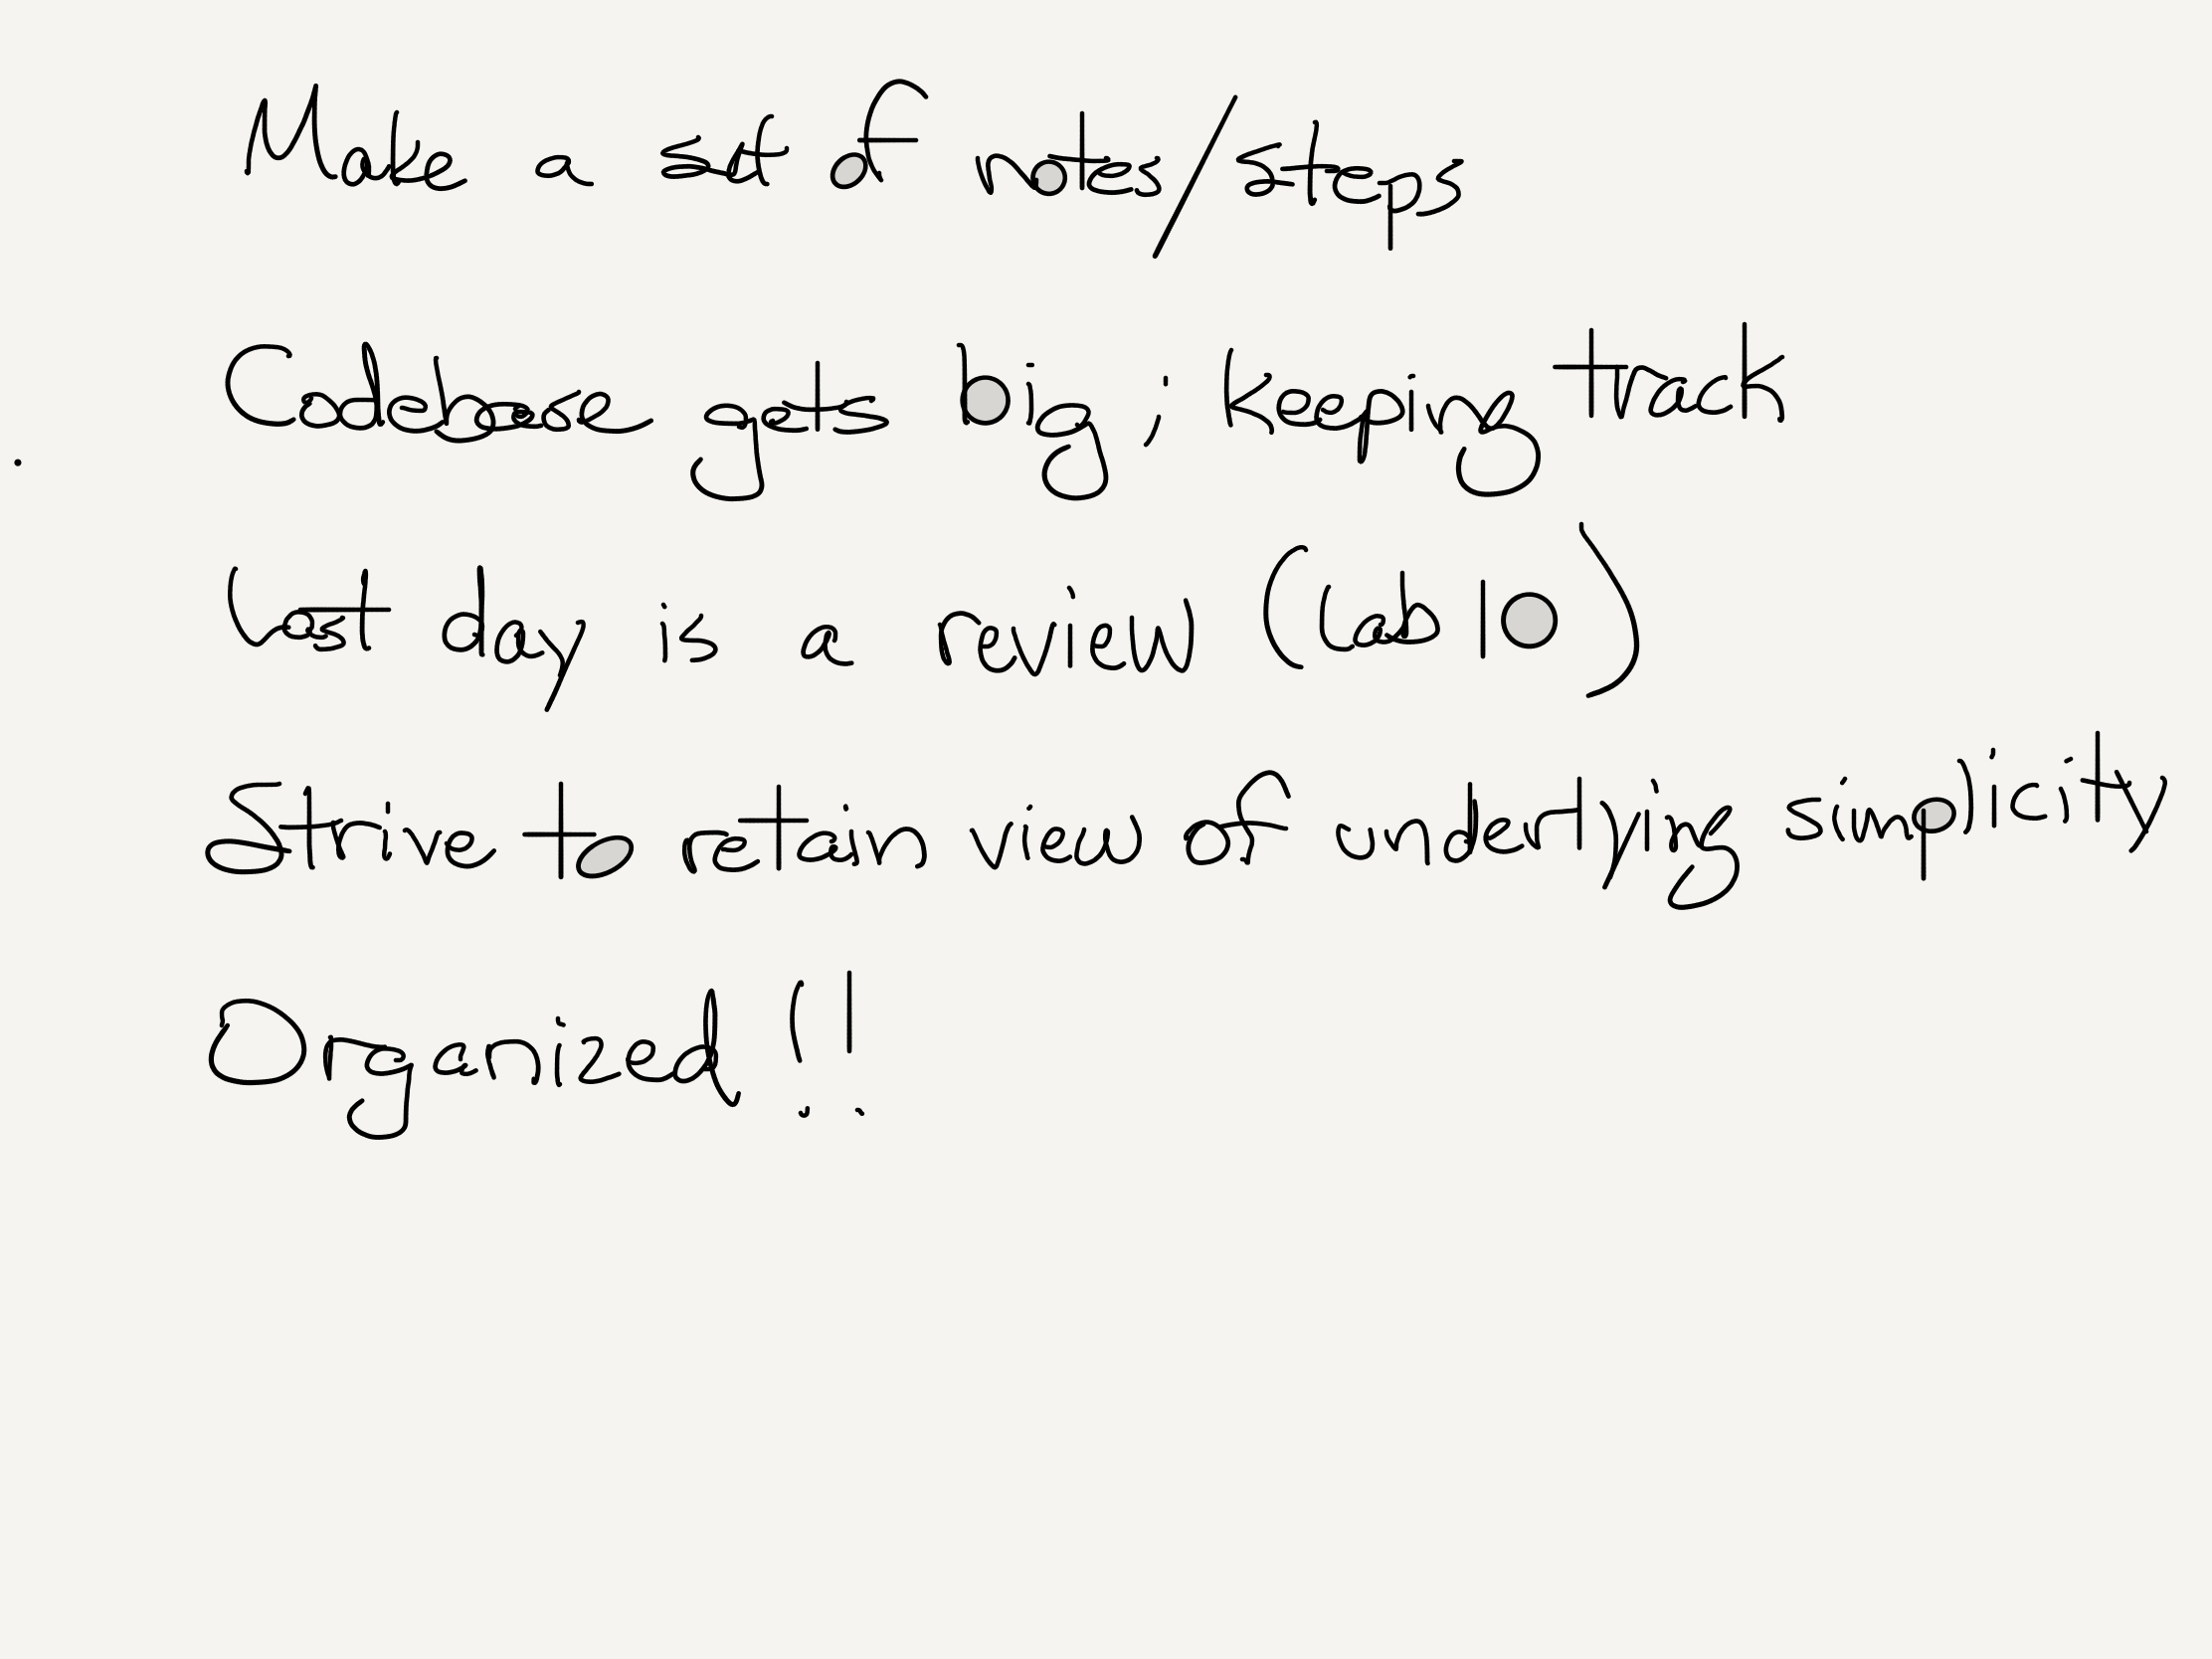 Make a set of notes/steps
Codebase gets big; keeping track
Last day is a review (Lab 10)
Strive to retain view of underlying simplicity
Organized!!